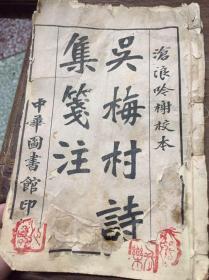 滄浪吟榭校本
吳梅村詩
集箋注
中華圖書館印